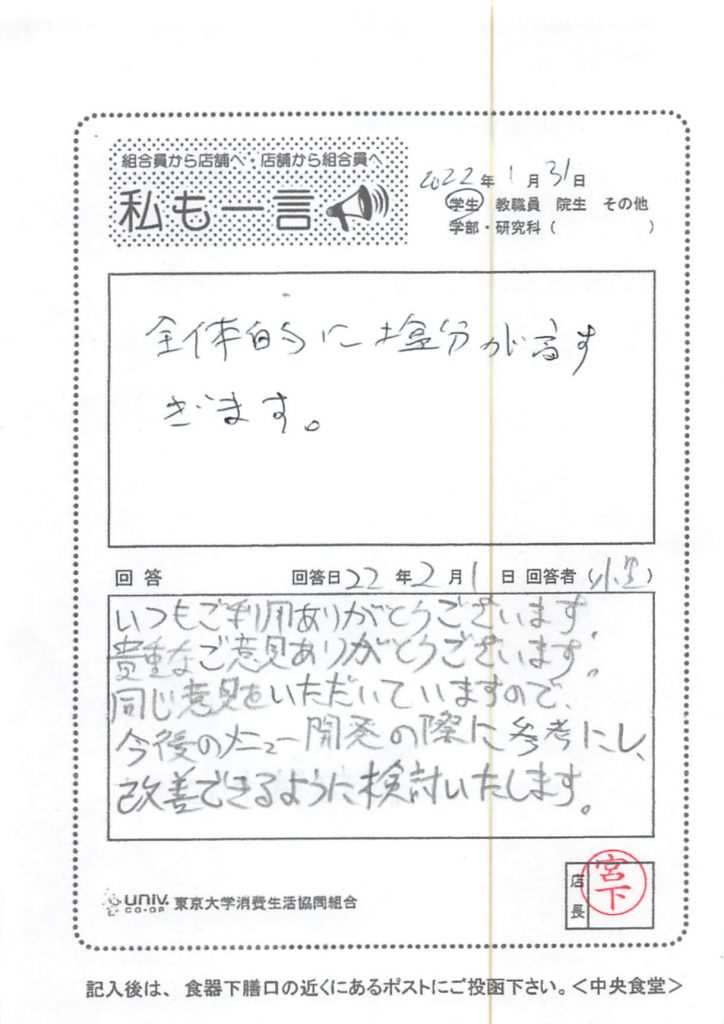 組合員から店舗へ・店舗から組合員へ
私も一言
2022年1月31日
学生 教職員 院生 その他
学部・研究科（ ）
全体的に塩分が高す
ぎます。
回答 回答日22年2月1日 回答者（ ）
いつもご利用ありがとうございます。
貴重なご意見ありがとうございます。
同じ意見をいただいていますので、
今後のメニュー開発の際に参考にし、
改善できるように検討いたします。
店長
宮下
univ. CO-OP 東京大学消費生活協同組合
記入後は、食器下膳口の近くにあるポストにご投函下さい。＜中央食堂＞